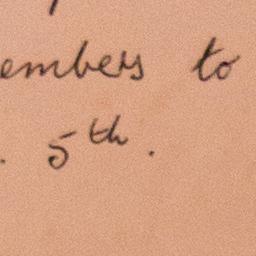 embers to
. 5th.